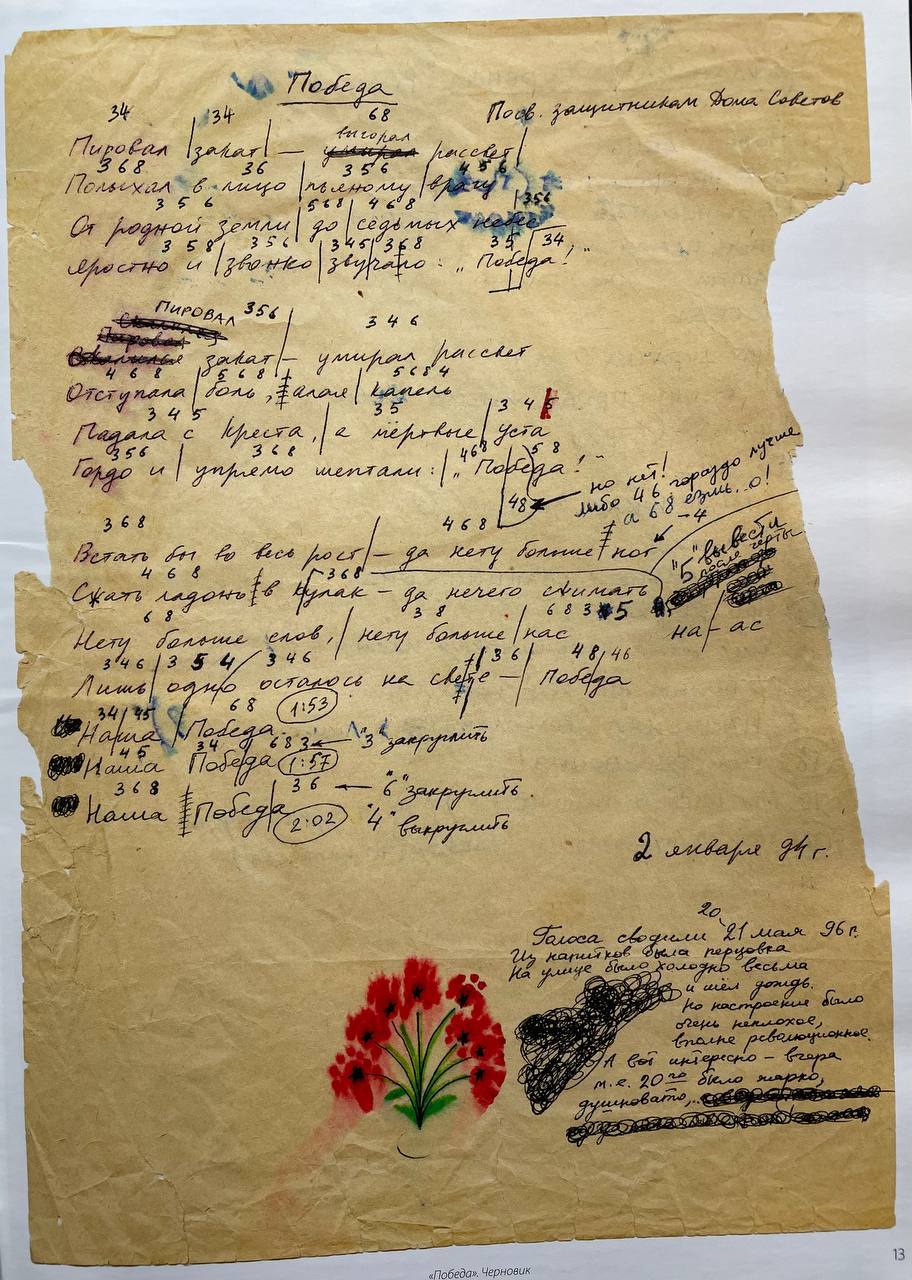 Победа
Посв. защитникам Дома Советов
34 34 68
выгорал
Пировал | закат | — умирал рассвет |
368 36 356 456
Полыхал в лицо | пьяному | врагу
356 568 468 356
От родной земли | до | седьмых небес
358 356 345 368 35 34
Яростно и | звонко | звучало : „ Победа! "
Пировал 356 346
Пировал
закат | — умирал рассвет
468 568 5684
Отступала | боль, алая | капель
345 35 345
Падала с креста, | а мёртвые | уста
356 368 468 58
Гордо и | упрямо шептали : | „ Победа! "
48
но нет!
либо 46 гораздо лучше
а 68 езмь...о!
368 468 -4
Встать бы во весь рост | — да нету больше ног
"5" вывести
после черты
468 368
Сжать ладонь в кулак — да нечего сжимать
68 38 683 5
Нету больше слов, | нету больше | нас
на-ас
346 354 346 36 48 46
Лишь | одно осталось на свете — | Победа
34 45 68 1:53
Наша | Победа
45 34 683 ← "3" закруглить
Наша Победа 1:57
368 36 ← "6" закруглить
Наша Победа 2:02 "4" выкруглить
2 января 94 г.
20,
Голоса сводили 21 мая 96 г.
Из напитков была перцовка
На улице было холодно весьма
и шёл дождь.
Но настроение было
очень неплохое,
вполне революционное.
А вот интересно — вчера
т.е. 20го было жарко,
душновато,..
«Победа». Черновик
13